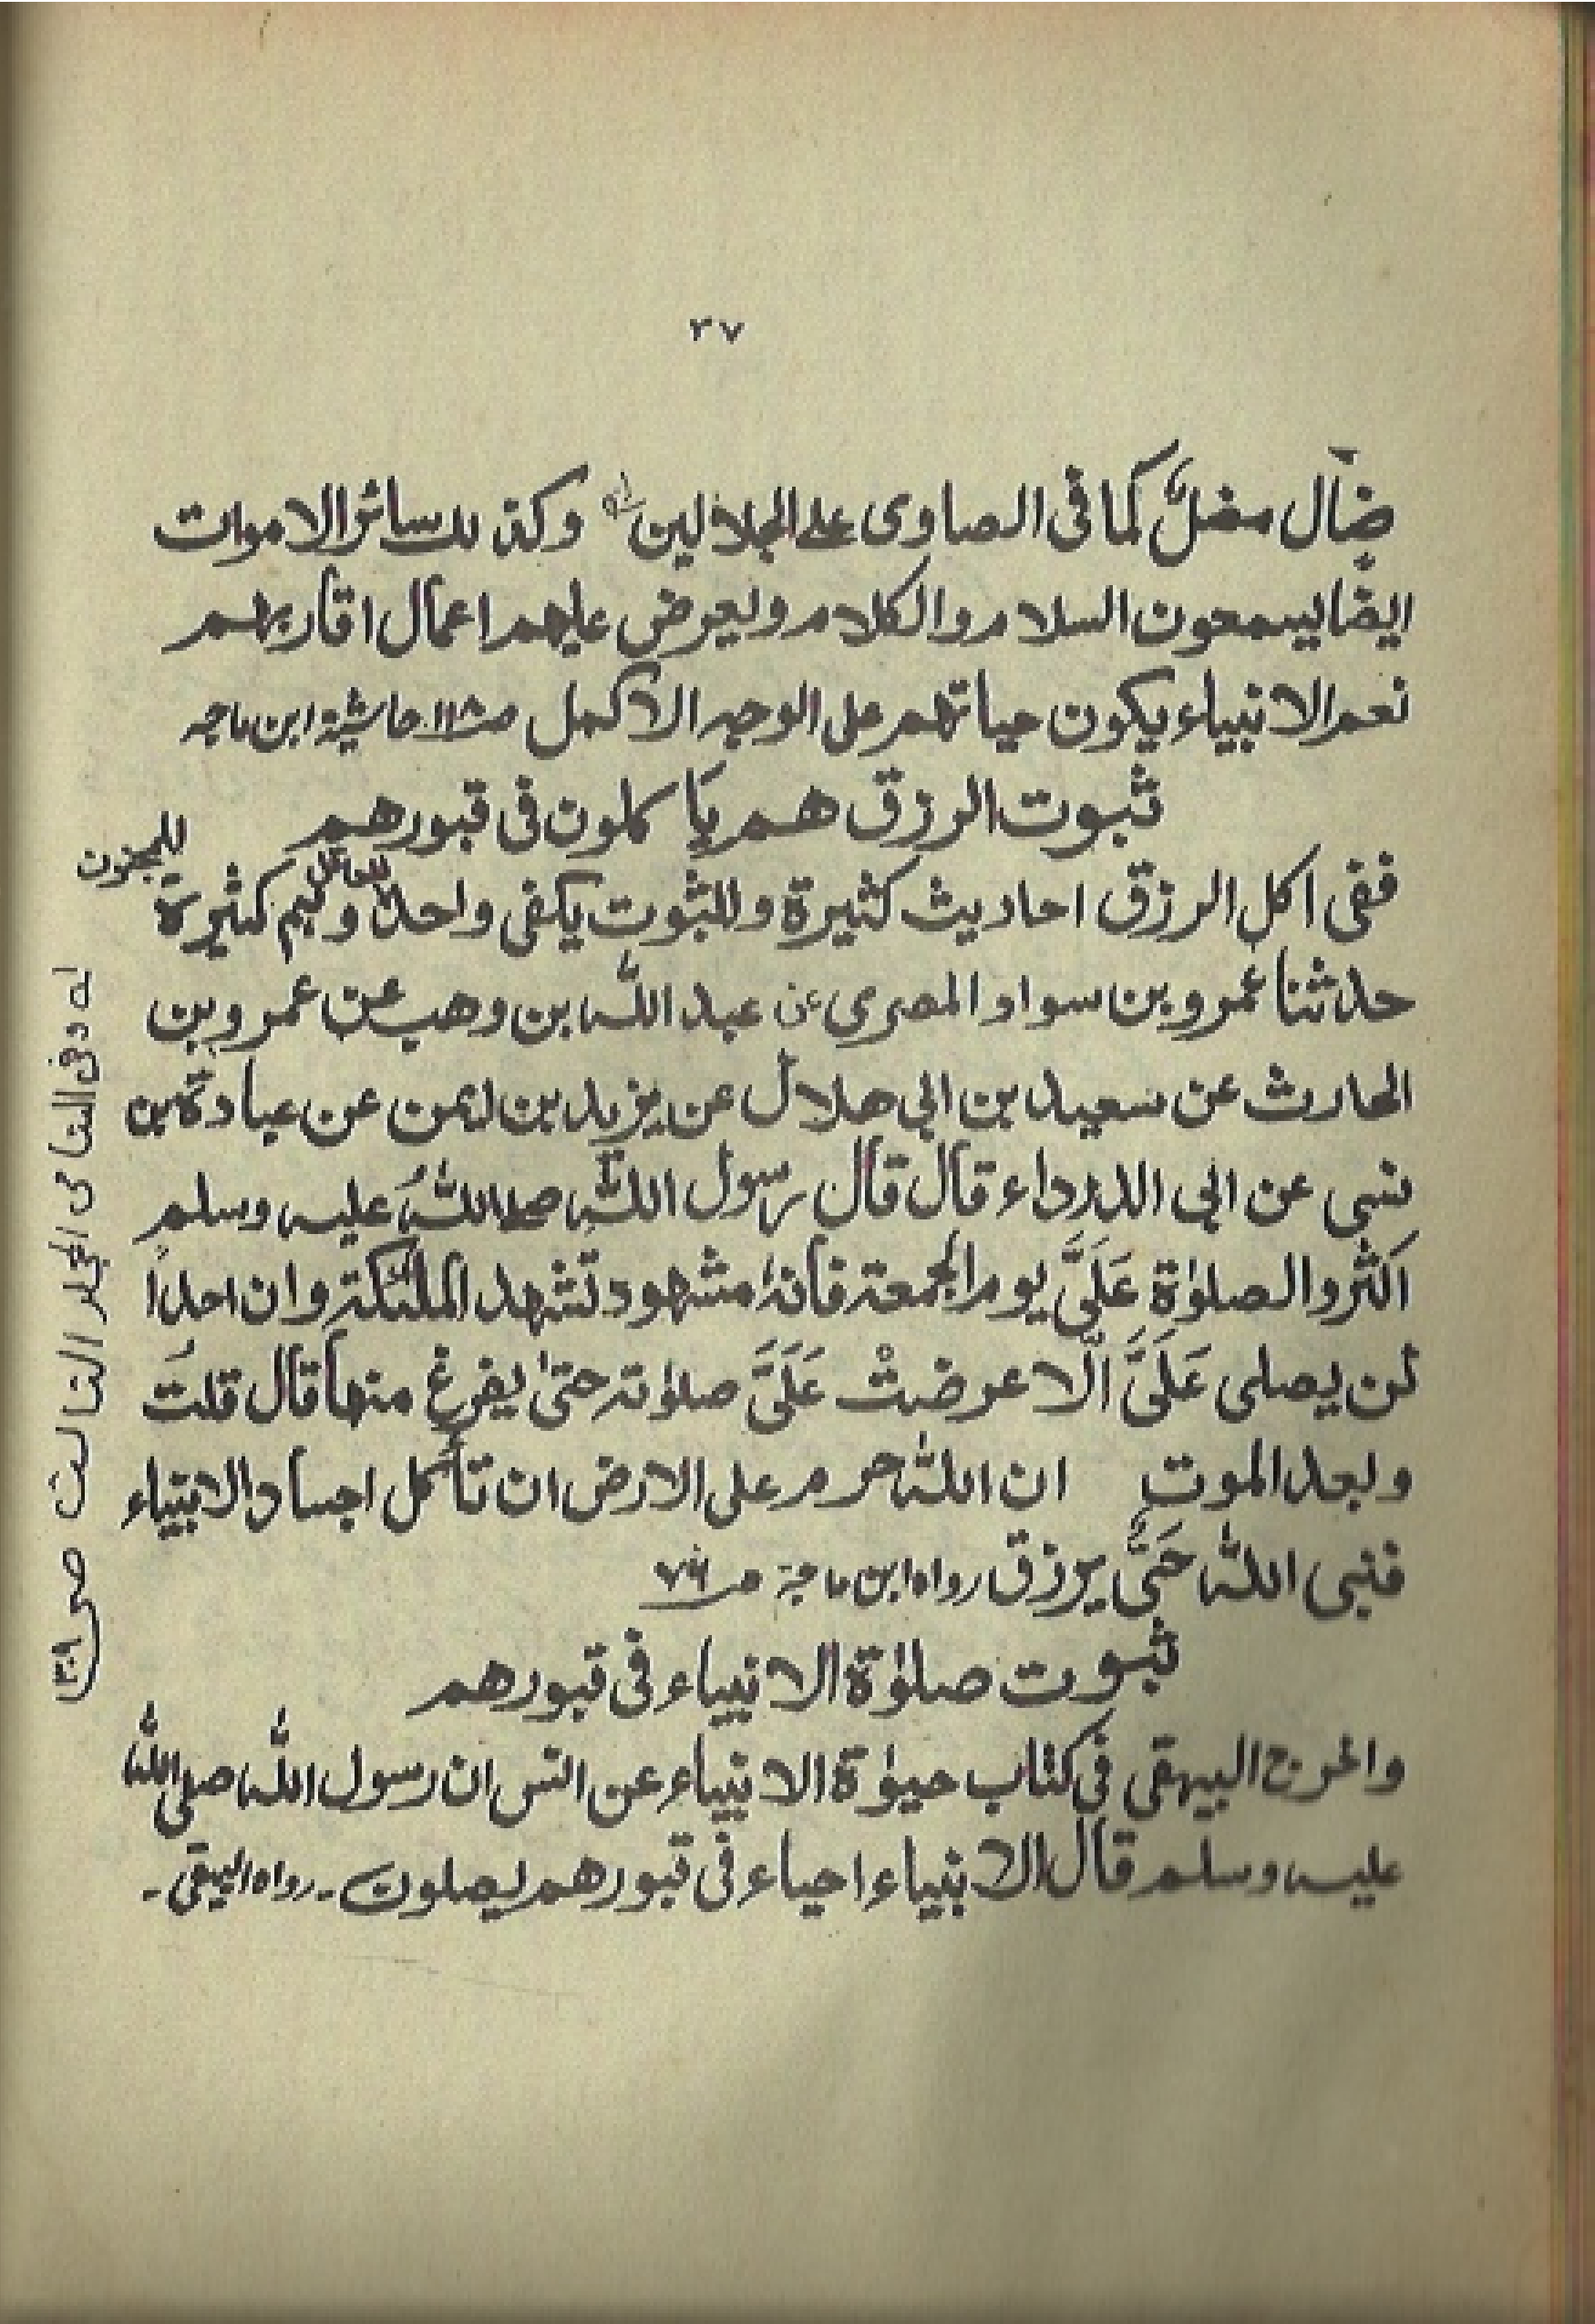 ٣٧
ضال مضل كما فى الصاوى على الجلالين وكذلك سائر الاموات
ايضا يسمعون السلام والكلام ويعرض عليهم اعمال اقاربهم
نعم الانبياء يكون حياتهم على الوجه الاكمل صـ١١٨ حاشية ابن ماجه
ثبوت الرزق هم ياكلون فى قبورهم
ففى اكل الرزق احاديث كثيرة وللثبوت يكفى واحد للعاقل و كثيرة للمجنون
حدثنا عمرو بن سواد المصرى عن عبد الله بن وهب عن عمرو بن
الحارث عن سعيد بن ابى هلال عن يزيد بن ايمن عن عبادة بن
نسى عن ابى الدرداء قال قال رسول الله صلى اللهُ عليه وسلم
اَكثروا الصلوٰة عَلَىَّ يوم الجمعة فانهٗ مشهود تشهد الملئكة وان احداً
لن يصلى عَلَىَّ الّا عرضتْ عَلَىَّ صلوٰته حتىٰ يفرغ منها قال قلتُ
وبعد الموت ان الله حرم على الارض ان تأكل اجساد الانبياء
فنبى الله حَىٌّ يرزق رواه ابن ماجة صـ٧٦
ثبوت صلوٰة الانبياء فى قبورهم
واخرج البيهقى فى كتاب حيوٰة الانبياء عن انس ان رسول الله صلى الله
عليه وسلم قال الانبياء احياء فى قبورهم يصلون ـ رواه البيهقى ـ
له وفى الشامى الجلد الثالث ص